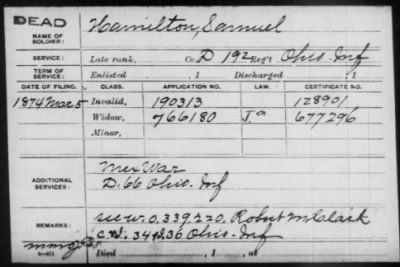 DEAD
NAME OF SOLDIER:
Hamilton, Samuel
SERVICE:
Late rank, Co. D 192 Reg't Ohio Inf
TERM OF SERVICE:
Enlisted , 1 Discharged , 1
DATE OF FILING. CLASS. APPLICATION NO. LAW. CERTIFICATE NO.
1874 Mar 5 Invalid, 190313 128901
Widow, 766180 Ja 677296
Minor,
ADDITIONAL SERVICES:
Mex War
D. 66 Ohio. Inf
REMARKS:
see w.o. 339220, Robert M. Clark
34th 36 Ohio. Inf
Died , 1 , at